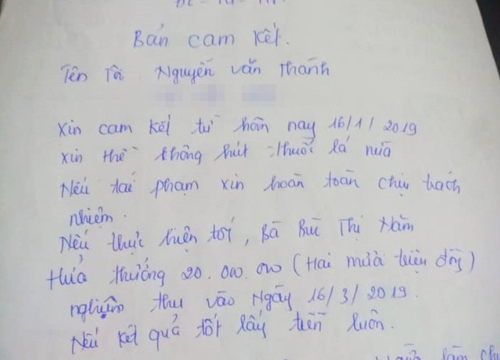 Bản cam kết.
Tên Tôi Nguyễn văn Thành
Xin cam kết từ hôm nay 16/1/2019
xin thề không hút thuốc lá nữa
Nếu tái phạm xin hoàn toàn chịu trách
nhiệm.
Nếu thực hiện tốt, Bà Bùi Thị Năm
Hứa thưởng 20.000.000 (Hai mươi triệu đồng)
nghiệm thu vào Ngày 16/3/2019.
Nếu kết quả tốt lấy tiền luôn.